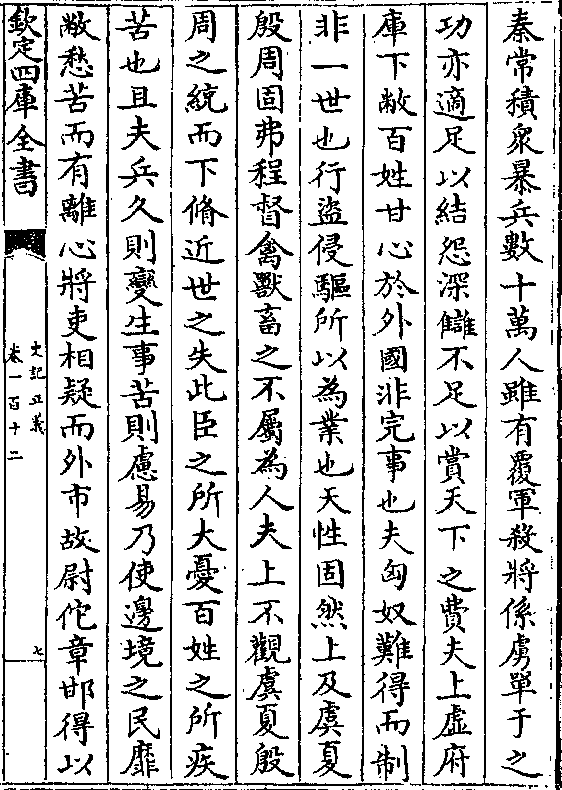 秦常積衆暴兵數十萬人雖有覆軍殺將係虜單于之
功亦適足以結怨深讎不足以賞天下之費夫上虛府
庫下敝百姓甘心於外國非完事也夫匈奴難得而制
非一世也行盜侵驅所以為業也天性固然上及虞夏
殷周固弗程督禽獸畜之不屬為人夫上不觀虞夏殷
周之統而下脩近世之失此臣之所大憂百姓之所疾
苦也且夫兵久則變生事苦則慮易乃使邊境之民靡
敝愁苦而有離心將吏相疑而外市故尉佗章邯得以
欽定四庫全書
史記正義
卷一百十二
七